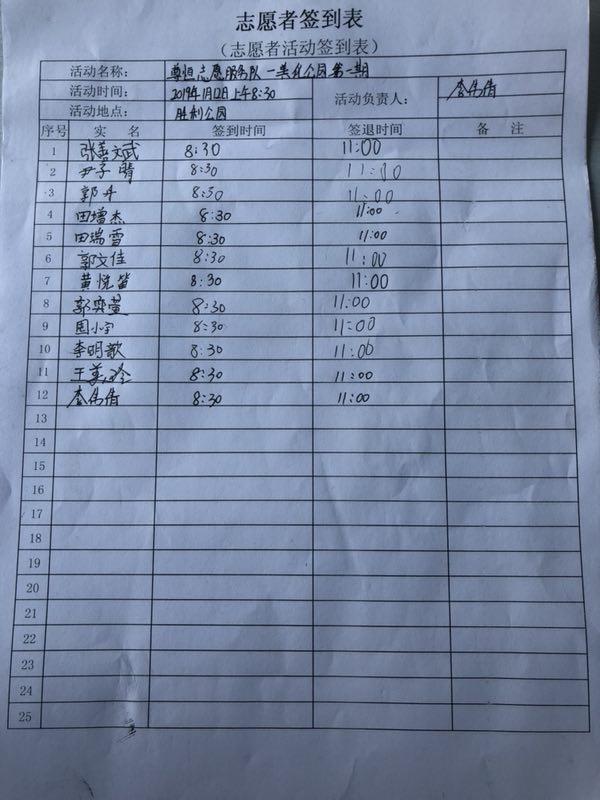 志愿者签到表
(志愿者活动签到表)
活动名称: 尊恒志愿服务队—美化公园第一期
活动时间: 2019年1月12日上午8:30 活动负责人: 李伟倩
活动地点: 胜利公园
序号 实 名 签到时间 签退时间 备 注
1 张善文武 8:30 11:00
2 尹子晴 8:30 11:00
3 郭丹 8:30 11:00
4 田增杰 8:30 11:00
5 田瑞雪 8:30 11:00
6 郭文佳 8:30 11:00
7 黄悦 8:30 11:00
8 郭奕萱 8:30 11:00
9 周小宇 8:30 11:00
10 李明歌 8:30 11:00
11 王美玲 8:30 11:00
12 李伟倩 8:30 11:00
13
14
15
16
17
18
19
20
21
22
23
24
25